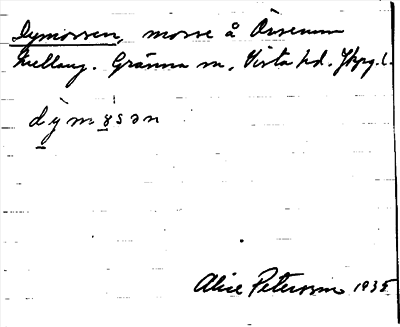 Dymossen, mosse å Örserum
Mellang. Gränna sn, Vista hd. Jkpg. l.
dỳmɷsən
Alice Peterson 1935